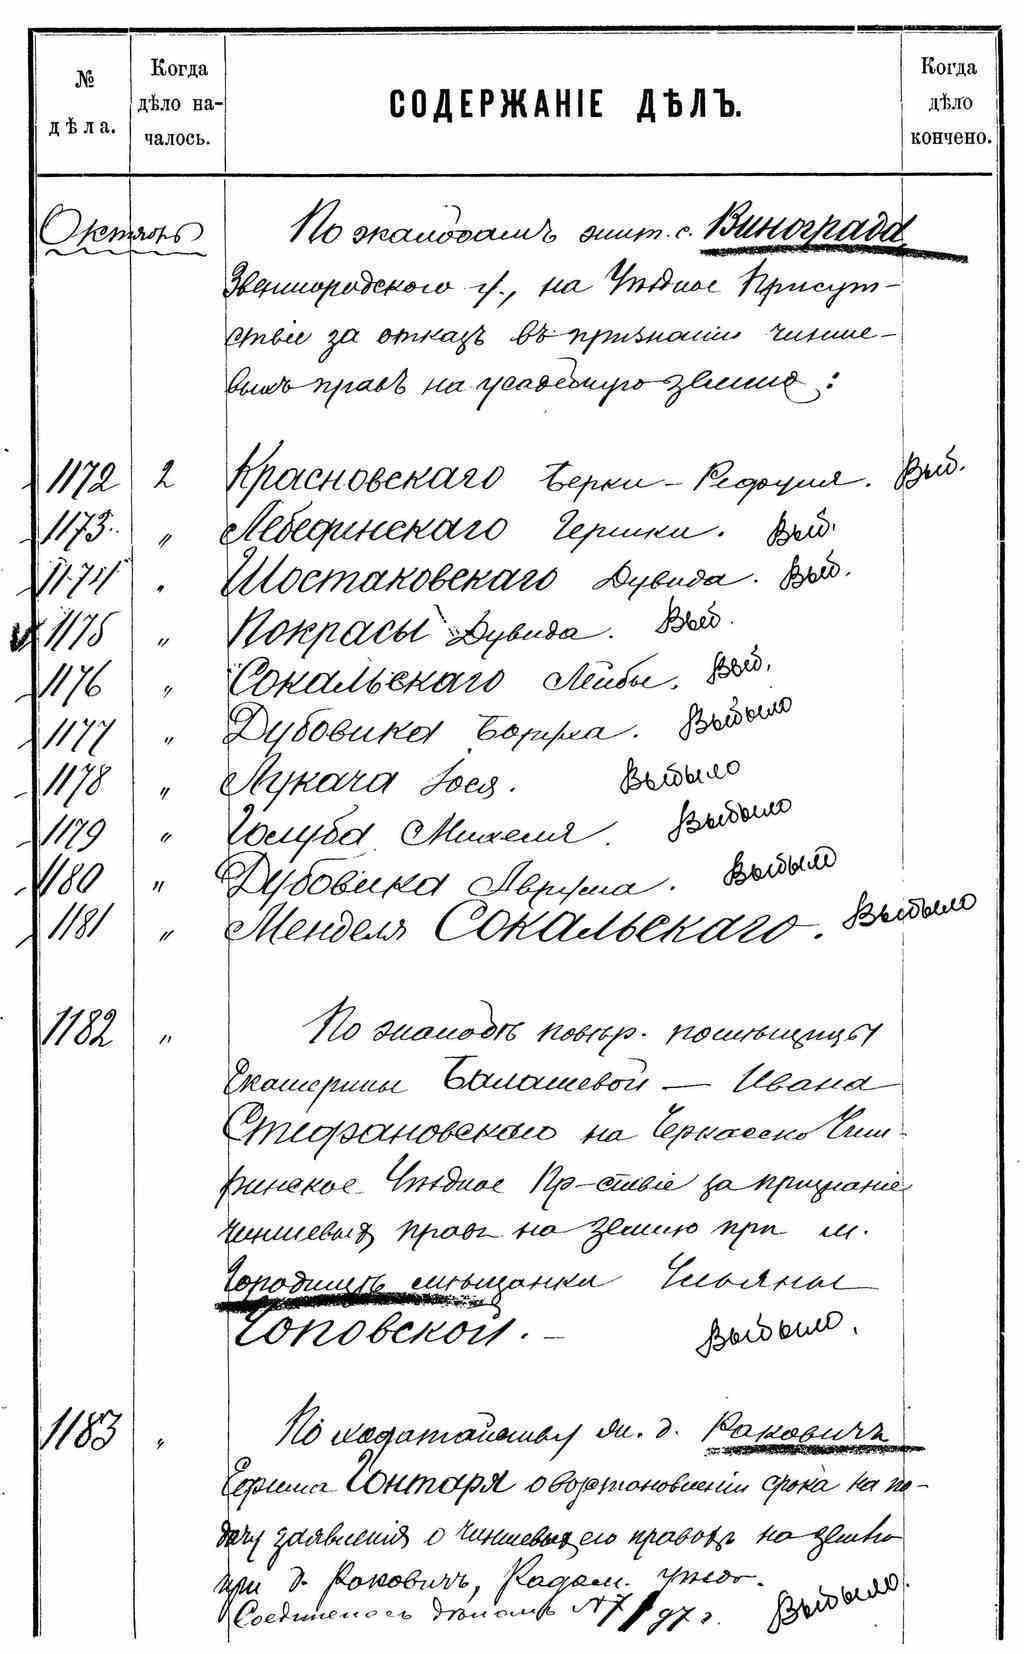 № дѣла.
Когда дѣло на-чалось.
СОДЕРЖАНІЕ ДѢЛЪ.
Когда дѣло кончено.
Октябрь
По жалобамъ жит. с. Винограда
Звенигородского у., на Уѣздное Присут-
ствіе за отказъ въ признаніи чинше-
выхъ правъ на усадебную землю:
1172 2 Красновскаго Берки - Рефуля. Выб.
1173 " Лебединскаго Гершки. Выб.
1174 " Шостаковскаго Дувида. Выб.
1175 " Покрасы Дувида. Выб.
1176 " Сокальскаго Лейбы. Выб.
1177 " Дубовика Боруха. Выбыло
1178 " Лукача Іося. Выбыло
1179 " Голуба Михеля. Выбыло
1180 " Дубовика Аврума. Выбыло
1181 " Менделя Сокальскаго. Выбыло
1182 " По жалобѣ повѣр. помѣщицы
Екатерины Балашевой — Ивана
Стефановскаго на Черкасско Чиги-
ринское Уѣздное Пр-ствіе за признаніе
чиншевыхъ правъ на землю при м.
Городищѣ мѣщанки Ульяны
Чоповской. — Выбыло.
1183 " По ходатайству жи. д. Раковичъ
Ефима Гонтаря о возстановленіи срока на по-
дачу заявленія о чиншевыхъ его правахъ на землю
при д. Раковичъ, Радом. уѣзд.
Соединено съ дѣломъ № 71 97 г. Выбыло.